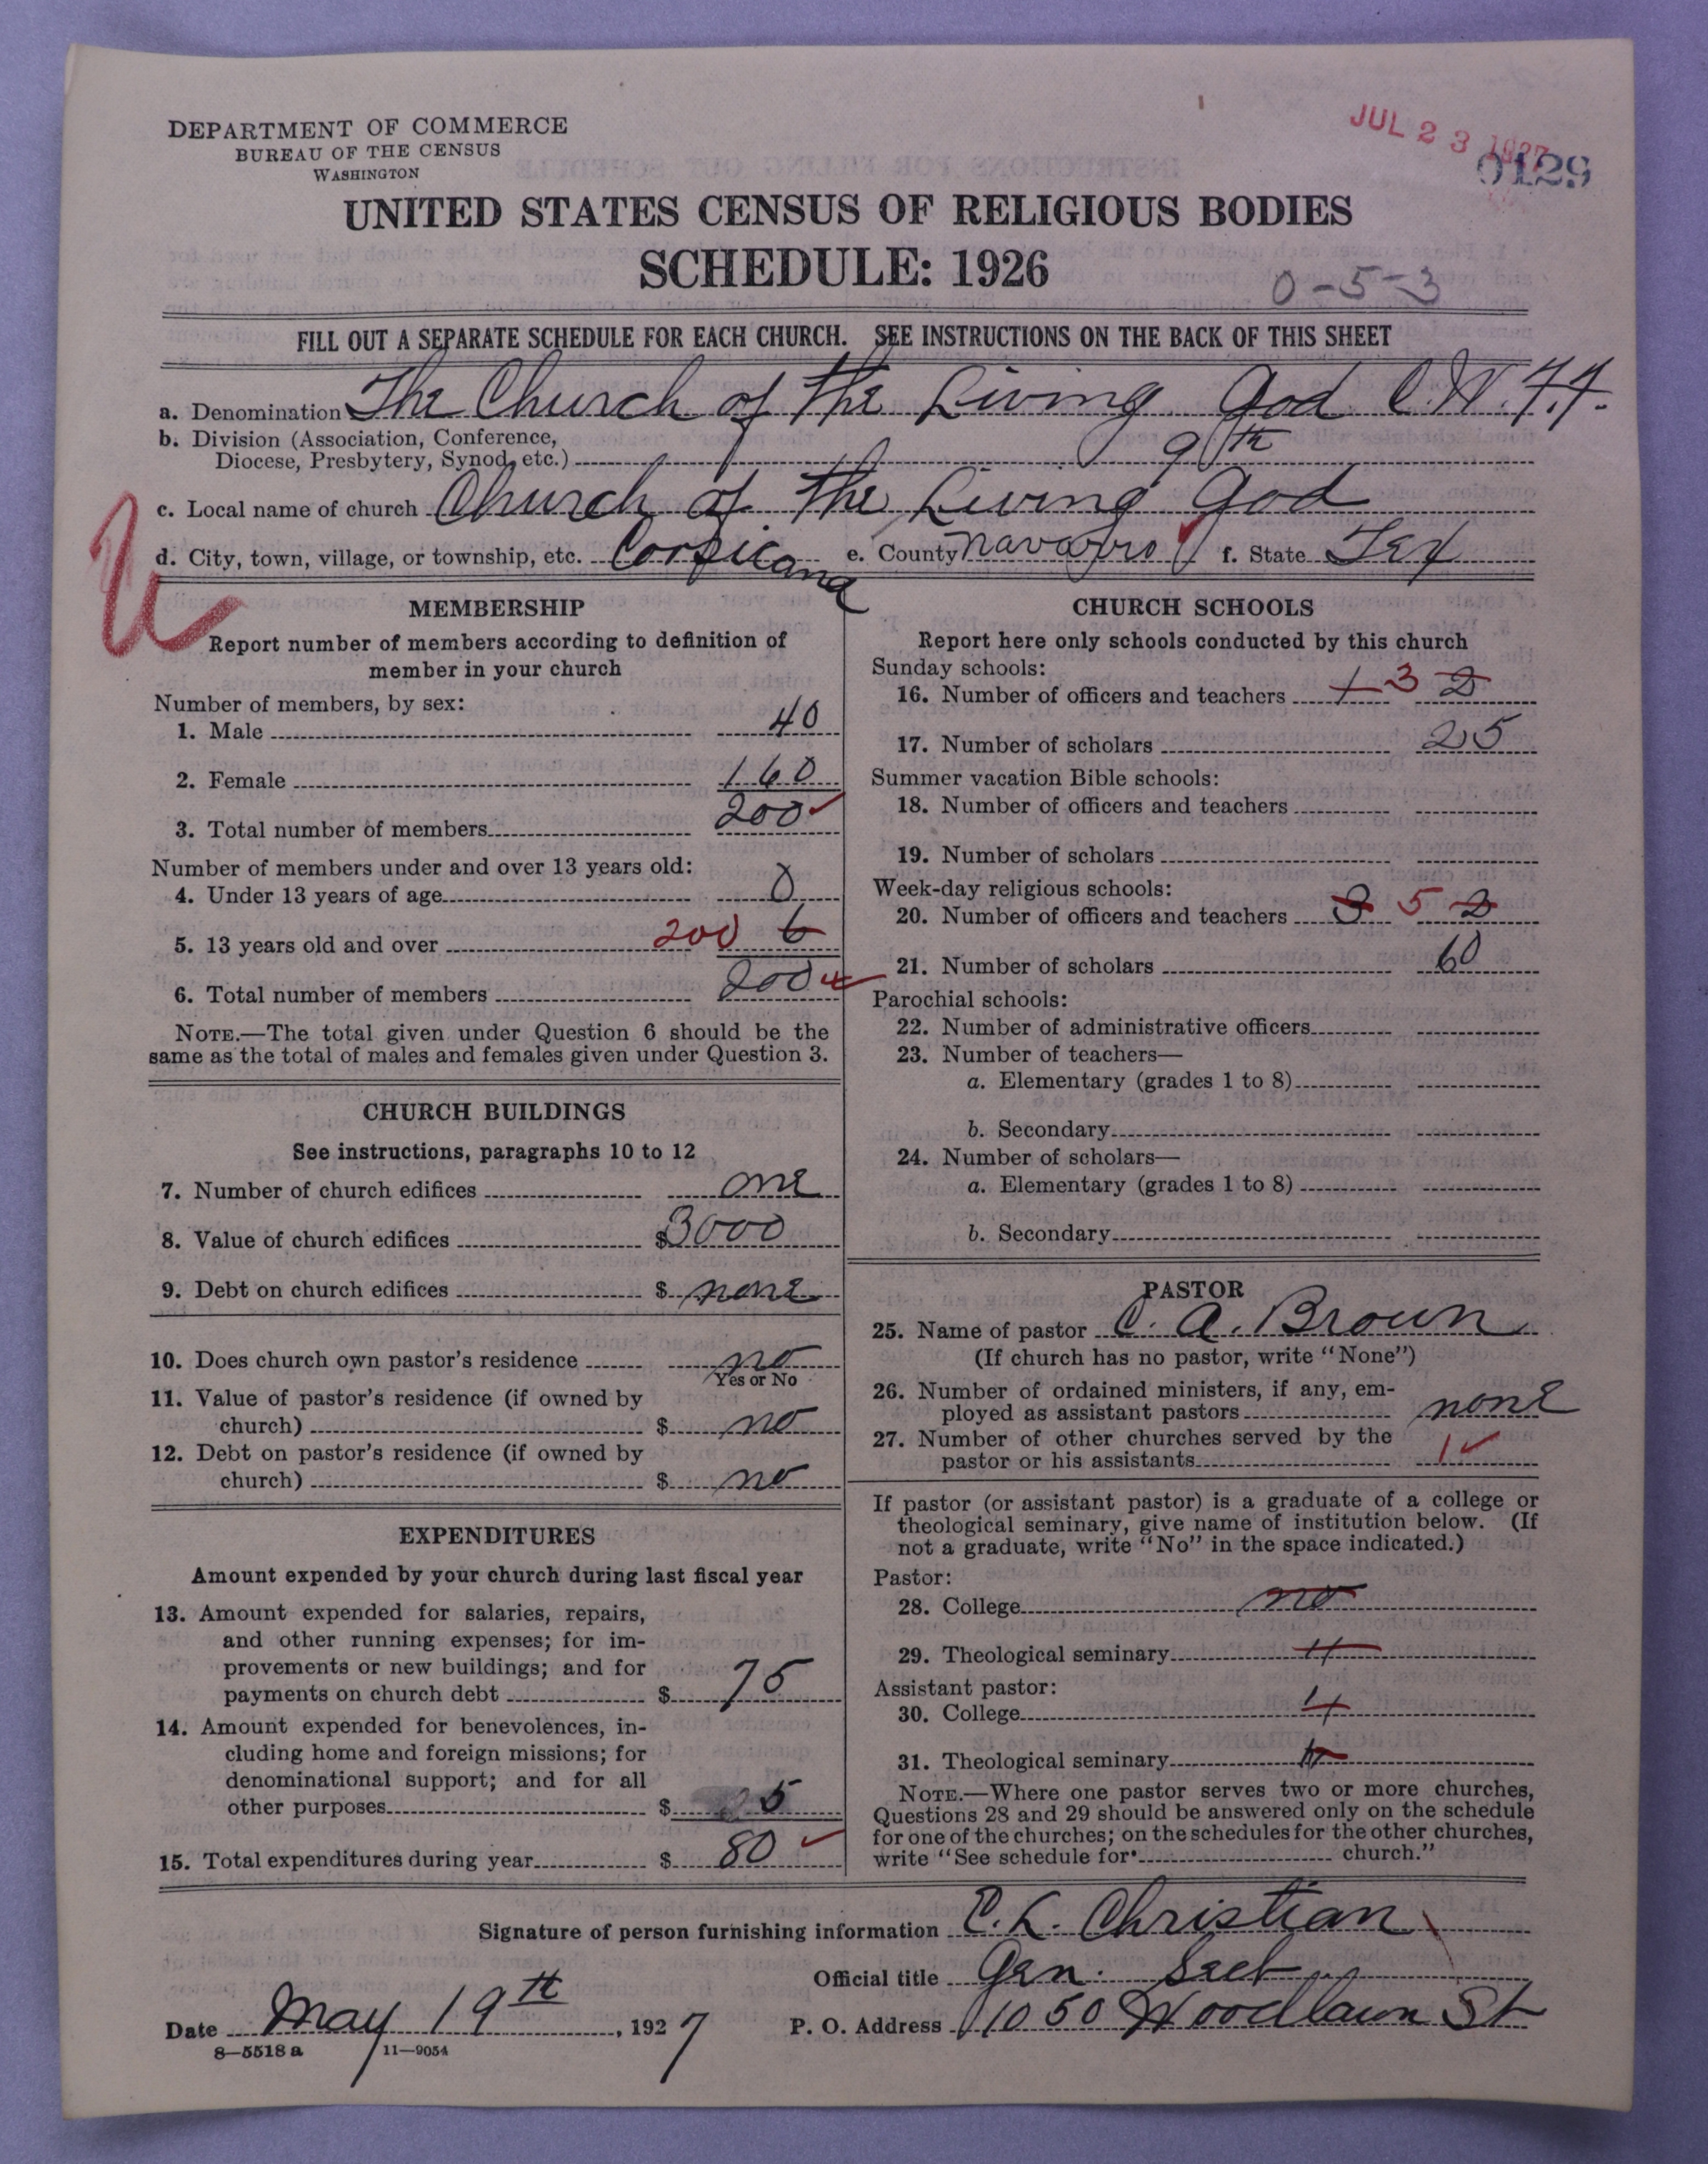 DEPARTMENT OF COMMERCE
BUREAU OF THE CENSUS
WASHINGTON
JUL 23 1927
0129
UNITED STATES CENSUS OF RELIGIOUS BODIES
SCHEDULE: 1926
0-5-3
FILL OUT A SEPARATE SCHEDULE FOR EACH CHURCH. SEE INSTRUCTIONS ON THE BACK OF THIS SHEET
a. Denomination The Church of the Living God C.W.F.F.
b. Division (Association, Conference,
Diocese, Presbytery, Synod, etc.) 9th
c. Local name of church Church of the Living God
d. City, town, village, or township, etc. Corsicana e. County Navarro f. State Tex
MEMBERSHIP
Report number of members according to definition of
member in your church
Number of members, by sex:
1. Male 40
2. Female 160
3. Total number of members 200
Number of members under and over 13 years old:
4. Under 13 years of age 0
5. 13 years old and over 200 6
6. Total number of members 200
NOTE.—The total given under Question 6 should be the
same as the total of males and females given under Question 3.
CHURCH BUILDINGS
See instructions, paragraphs 10 to 12
7. Number of church edifices one
8. Value of church edifices $3000
9. Debt on church edifices $ none
10. Does church own pastor's residence no
Yes or No
11. Value of pastor's residence (if owned by
church) $ no
12. Debt on pastor's residence (if owned by
church) $ no
EXPENDITURES
Amount expended by your church during last fiscal year
13. Amount expended for salaries, repairs,
and other running expenses; for im-
provements or new buildings; and for
payments on church debt $ 75
14. Amount expended for benevolences, in-
cluding home and foreign missions; for
denominational support; and for all
other purposes $ 5
15. Total expenditures during year $ 80
CHURCH SCHOOLS
Report here only schools conducted by this church
Sunday schools:
16. Number of officers and teachers 1 3 2
17. Number of scholars 25
Summer vacation Bible schools:
18. Number of officers and teachers
19. Number of scholars
Week-day religious schools:
20. Number of officers and teachers 3 5 2
21. Number of scholars 60
Parochial schools:
22. Number of administrative officers
23. Number of teachers—
a. Elementary (grades 1 to 8)
b. Secondary
24. Number of scholars—
a. Elementary (grades 1 to 8)
b. Secondary
PASTOR
25. Name of pastor C. A. Brown
(If church has no pastor, write "None")
26. Number of ordained ministers, if any, em-
ployed as assistant pastors none
27. Number of other churches served by the
pastor or his assistants 1
If pastor (or assistant pastor) is a graduate of a college or
theological seminary, give name of institution below. (If
not a graduate, write "No" in the space indicated.)
Pastor:
28. College no
29. Theological seminary "
Assistant pastor:
30. College "
31. Theological seminary "
NOTE.—Where one pastor serves two or more churches,
Questions 28 and 29 should be answered only on the schedule
for one of the churches; on the schedules for the other churches,
write "See schedule for church."
Signature of person furnishing information C. L. Christian
Official title Gen. Sect
Date May 19th, 1927 P. O. Address 1050 Woodlawn St
8—5518 a 11—9054